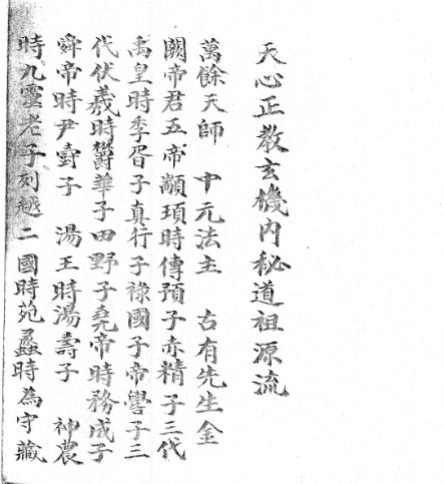 天心正教玄機内秘道祖源流
萬餘天師 中元法主 古有先生金
闕帝君五帝顓頊時傳預子赤精子三代
禹皇時季胥子真行子祿國子帝嚳子三
代伏義時欝華子田野子堯帝時務成子
舜帝時尹壽子 湯王時湯壽子 神農
時九靈老子列越二國時范蠡時為守藏